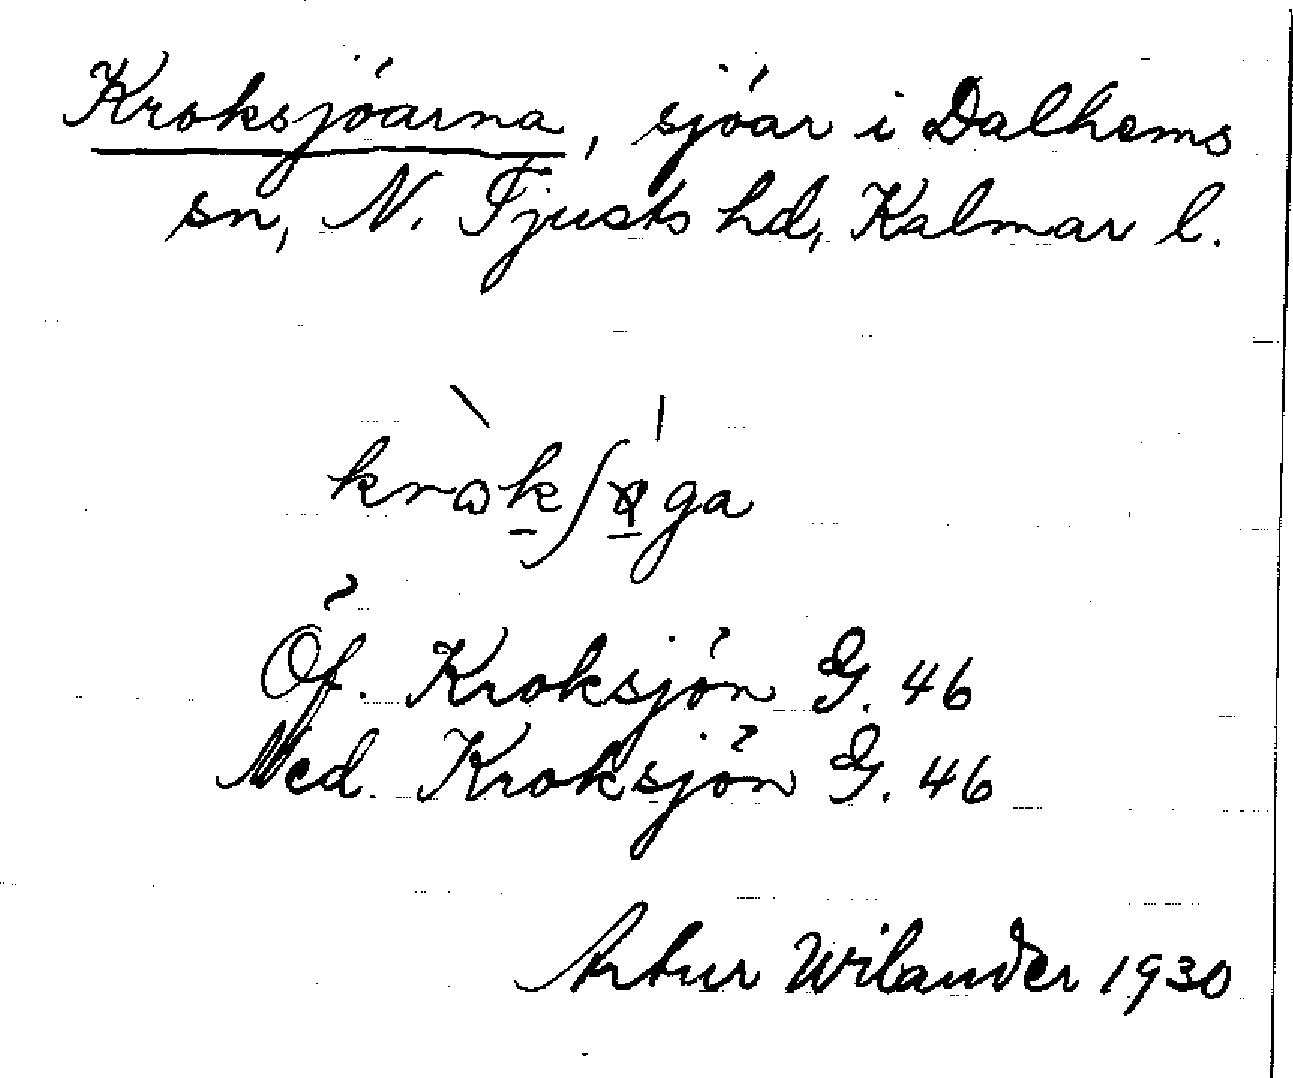 Kroksjöarna, sjöar i Dalhems
sn, N. Tjusts hd, Kalmar l.
Öf. Kroksjön G. 46
Ned. Kroksjön G. 46
Artur Wilander 1930